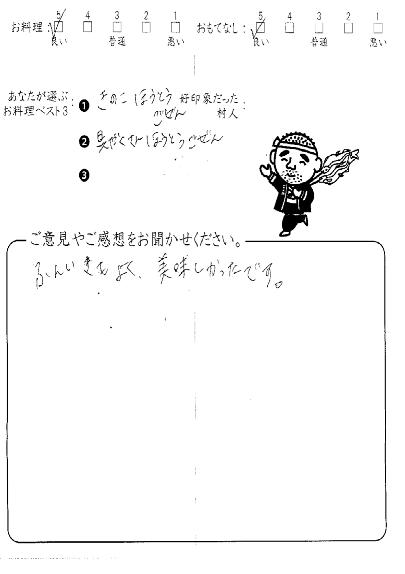 お料理: 5 4 3 2 1
良い 普通 悪い
おもてなし: 5 4 3 2 1
良い 普通 悪い
あなたが選ぶ
お料理ベスト3:
❶ きのこ ほうとう
ごぜん
好印象だった
村人:
❷ 具だくさんほうとうごぜん
❸
ご意見やご感想をお聞かせください。
ふんいきもよく、美味しかったです。